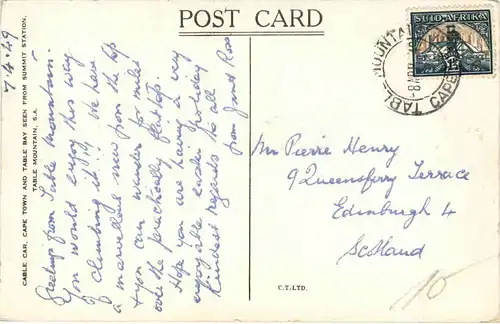 POST CARD
7.4.49
CABLE CAR, CAPE TOWN AND TABLE BAY SEEN FROM SUMMIT STATION,
TABLE MOUNTAIN, S.A.
Greetings from Table Mountain.
You would enjoy this way
of climbing it!! We have
a marvellous view from the top
& you can wander for miles
over the practically flat top.
Hope you are having a very
enjoyable easter holiday
Kindest regards to all
from Janet Ross
C.T.LTD.
SUID-AFRIKA
TABLE MOUNTAIN
CAPE
Mr Pierre Henry
9 Queensferry Terrace
Edinburgh 4
Scotland
10